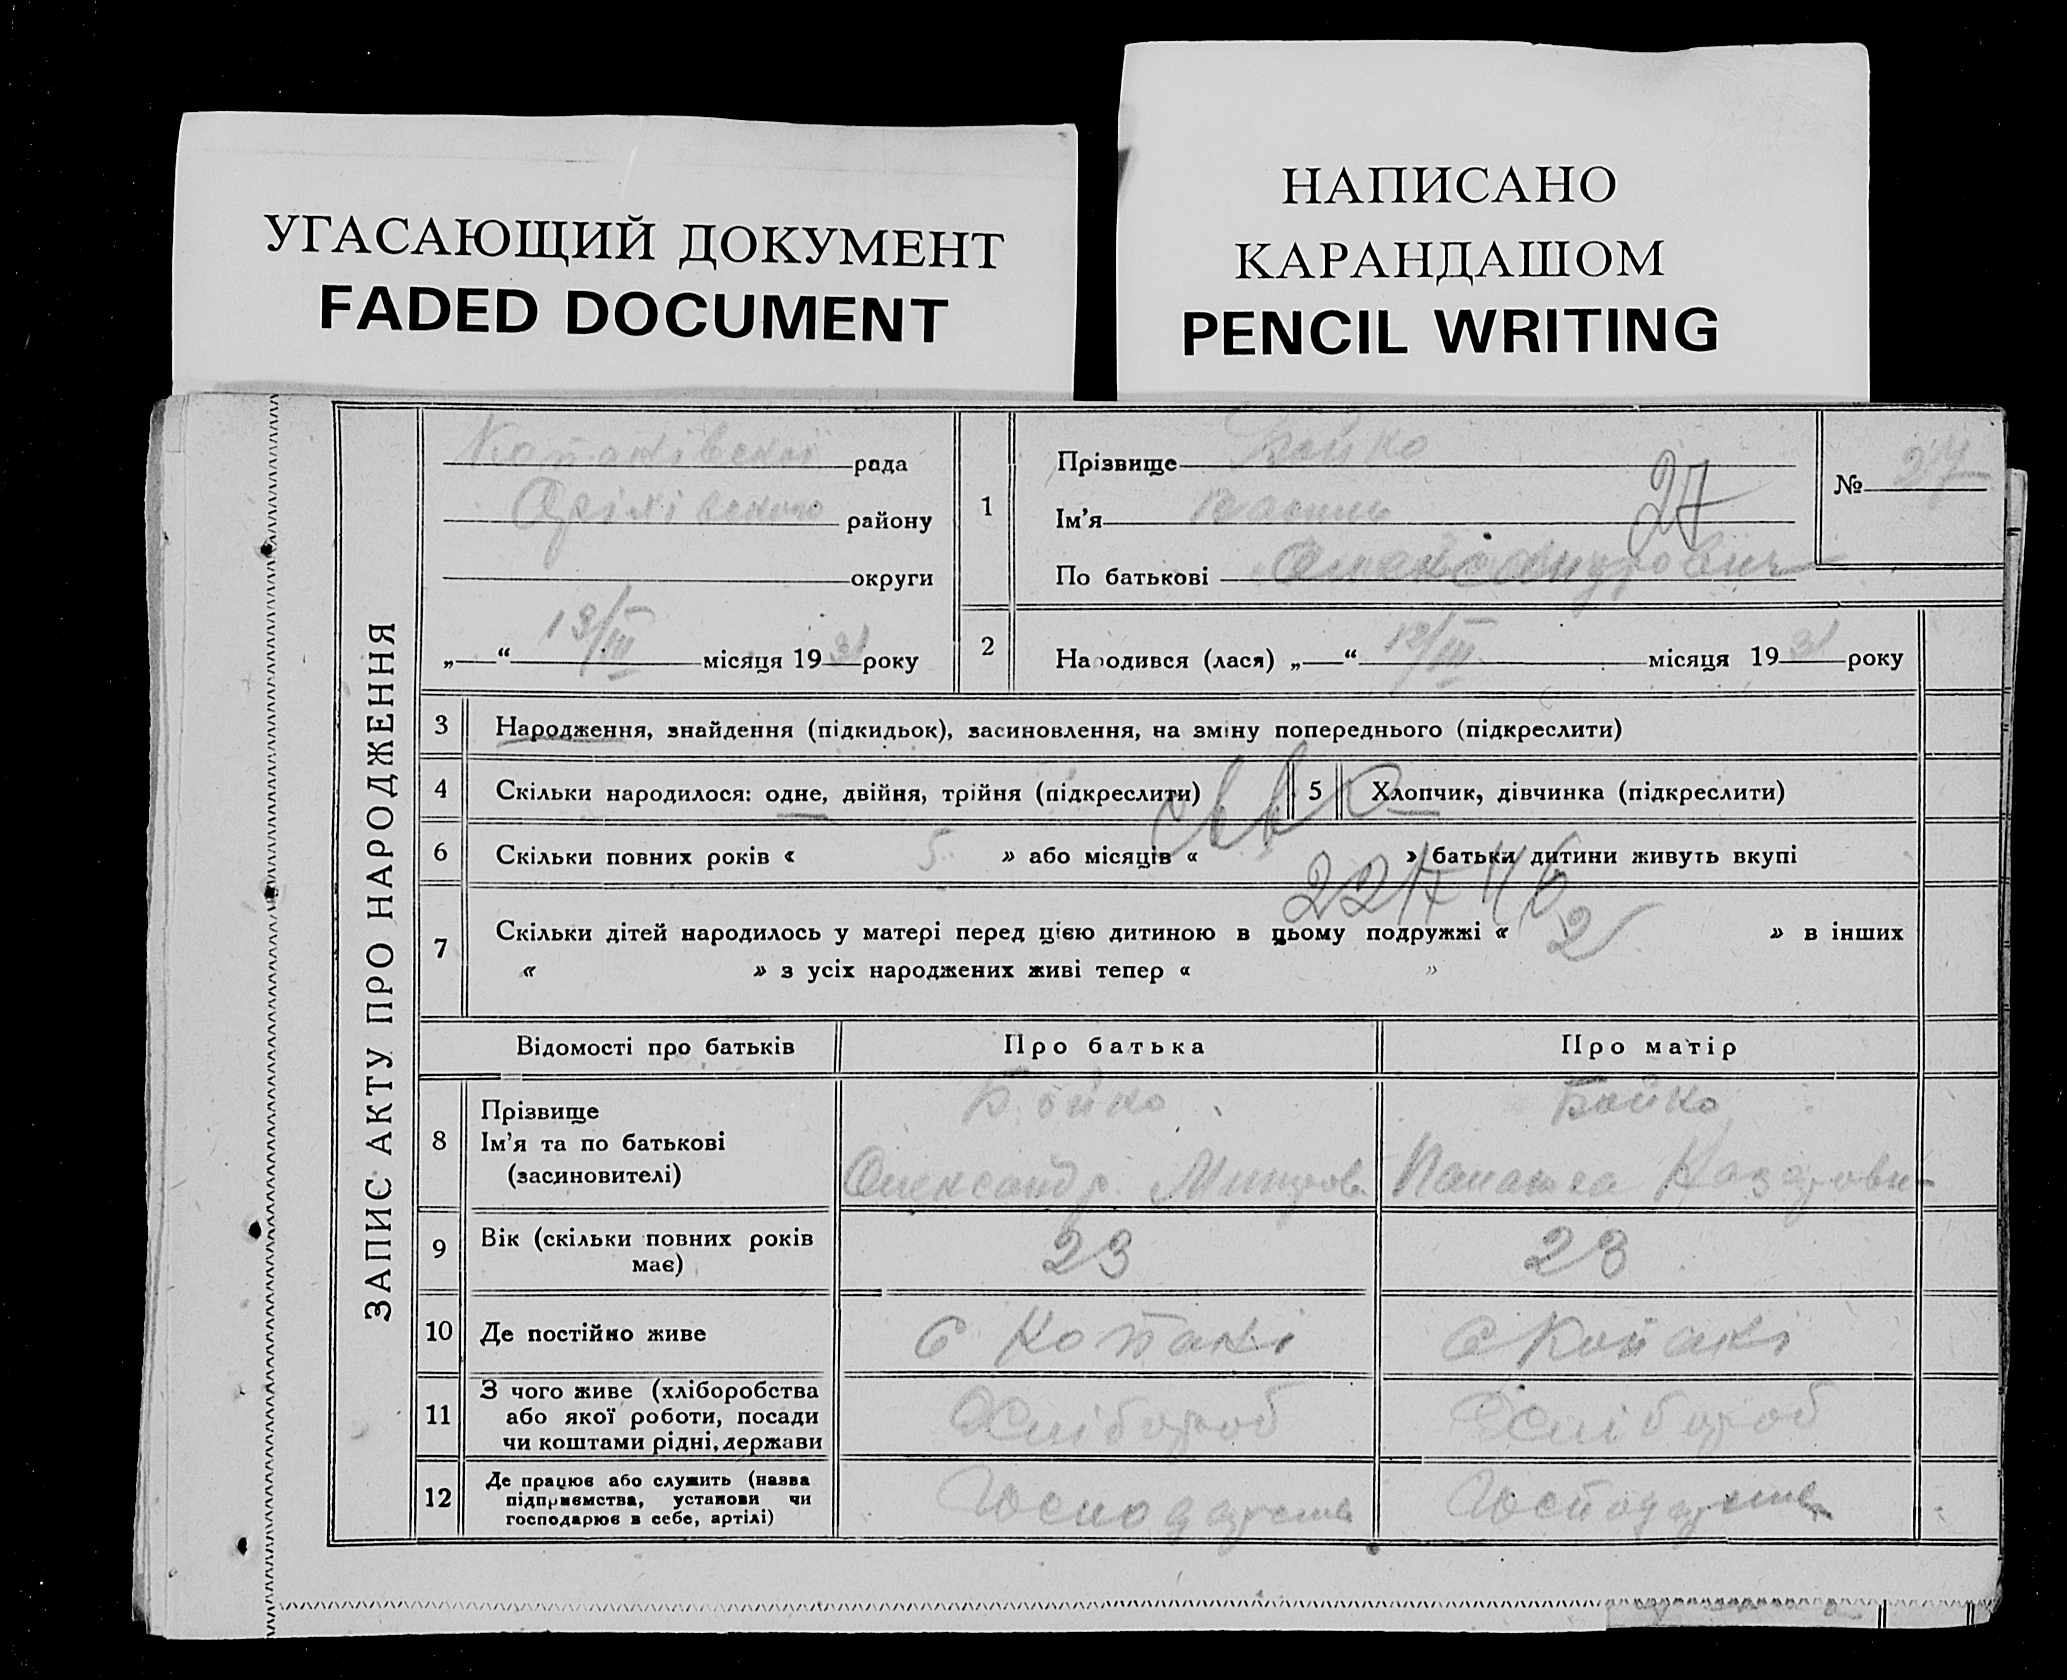 УГАСАЮЩИЙ ДОКУМЕНТ
FADED DOCUMENT
НАПИСАНО
КАРАНДАШОМ
PENCIL WRITING
ЗАПИС АКТУ ПРО НАРОДЖЕННЯ
Копанівської рада
Оріхівського району
округи
„ “ 13/III місяця 1931 року
1
Прізвище Бойко
Ім’я Василь
27
По батькові Олександрович
№ 27
2
Народився (лася) „ “ 12/III місяця 1931 року
3 Народження, знайдення (підкидьок), засиновлення, на зміну попереднього (підкреслити)
4 Скільки народилося: одне, двійня, трійня (підкреслити)
5 Хлопчик, дівчинка (підкреслити)
6 Скільки повних років « 5 » або місяців « » батьки дитини живуть вкупі
7 Скільки дітей народилось у матері перед цією дитиною в цьому подружжі « 2 » в інших
« » з усіх народжених живі тепер « »
Відомості про батьків Про батька Про матір
8 Прізвище
Ім’я та по батькові
(засиновителі)
Бойко Бойко
Олександр
9 Вік (скільки повних років
має)
23 23
10 Де постійно живе с Копані с Копані
11 З чого живе (хліборобства
або якої роботи, посади
чи коштами рідні, держави
Хлібороб Хлібороб
12 Де працює або служить (назва
підприємства, установи чи
господарює в себе, артілі)